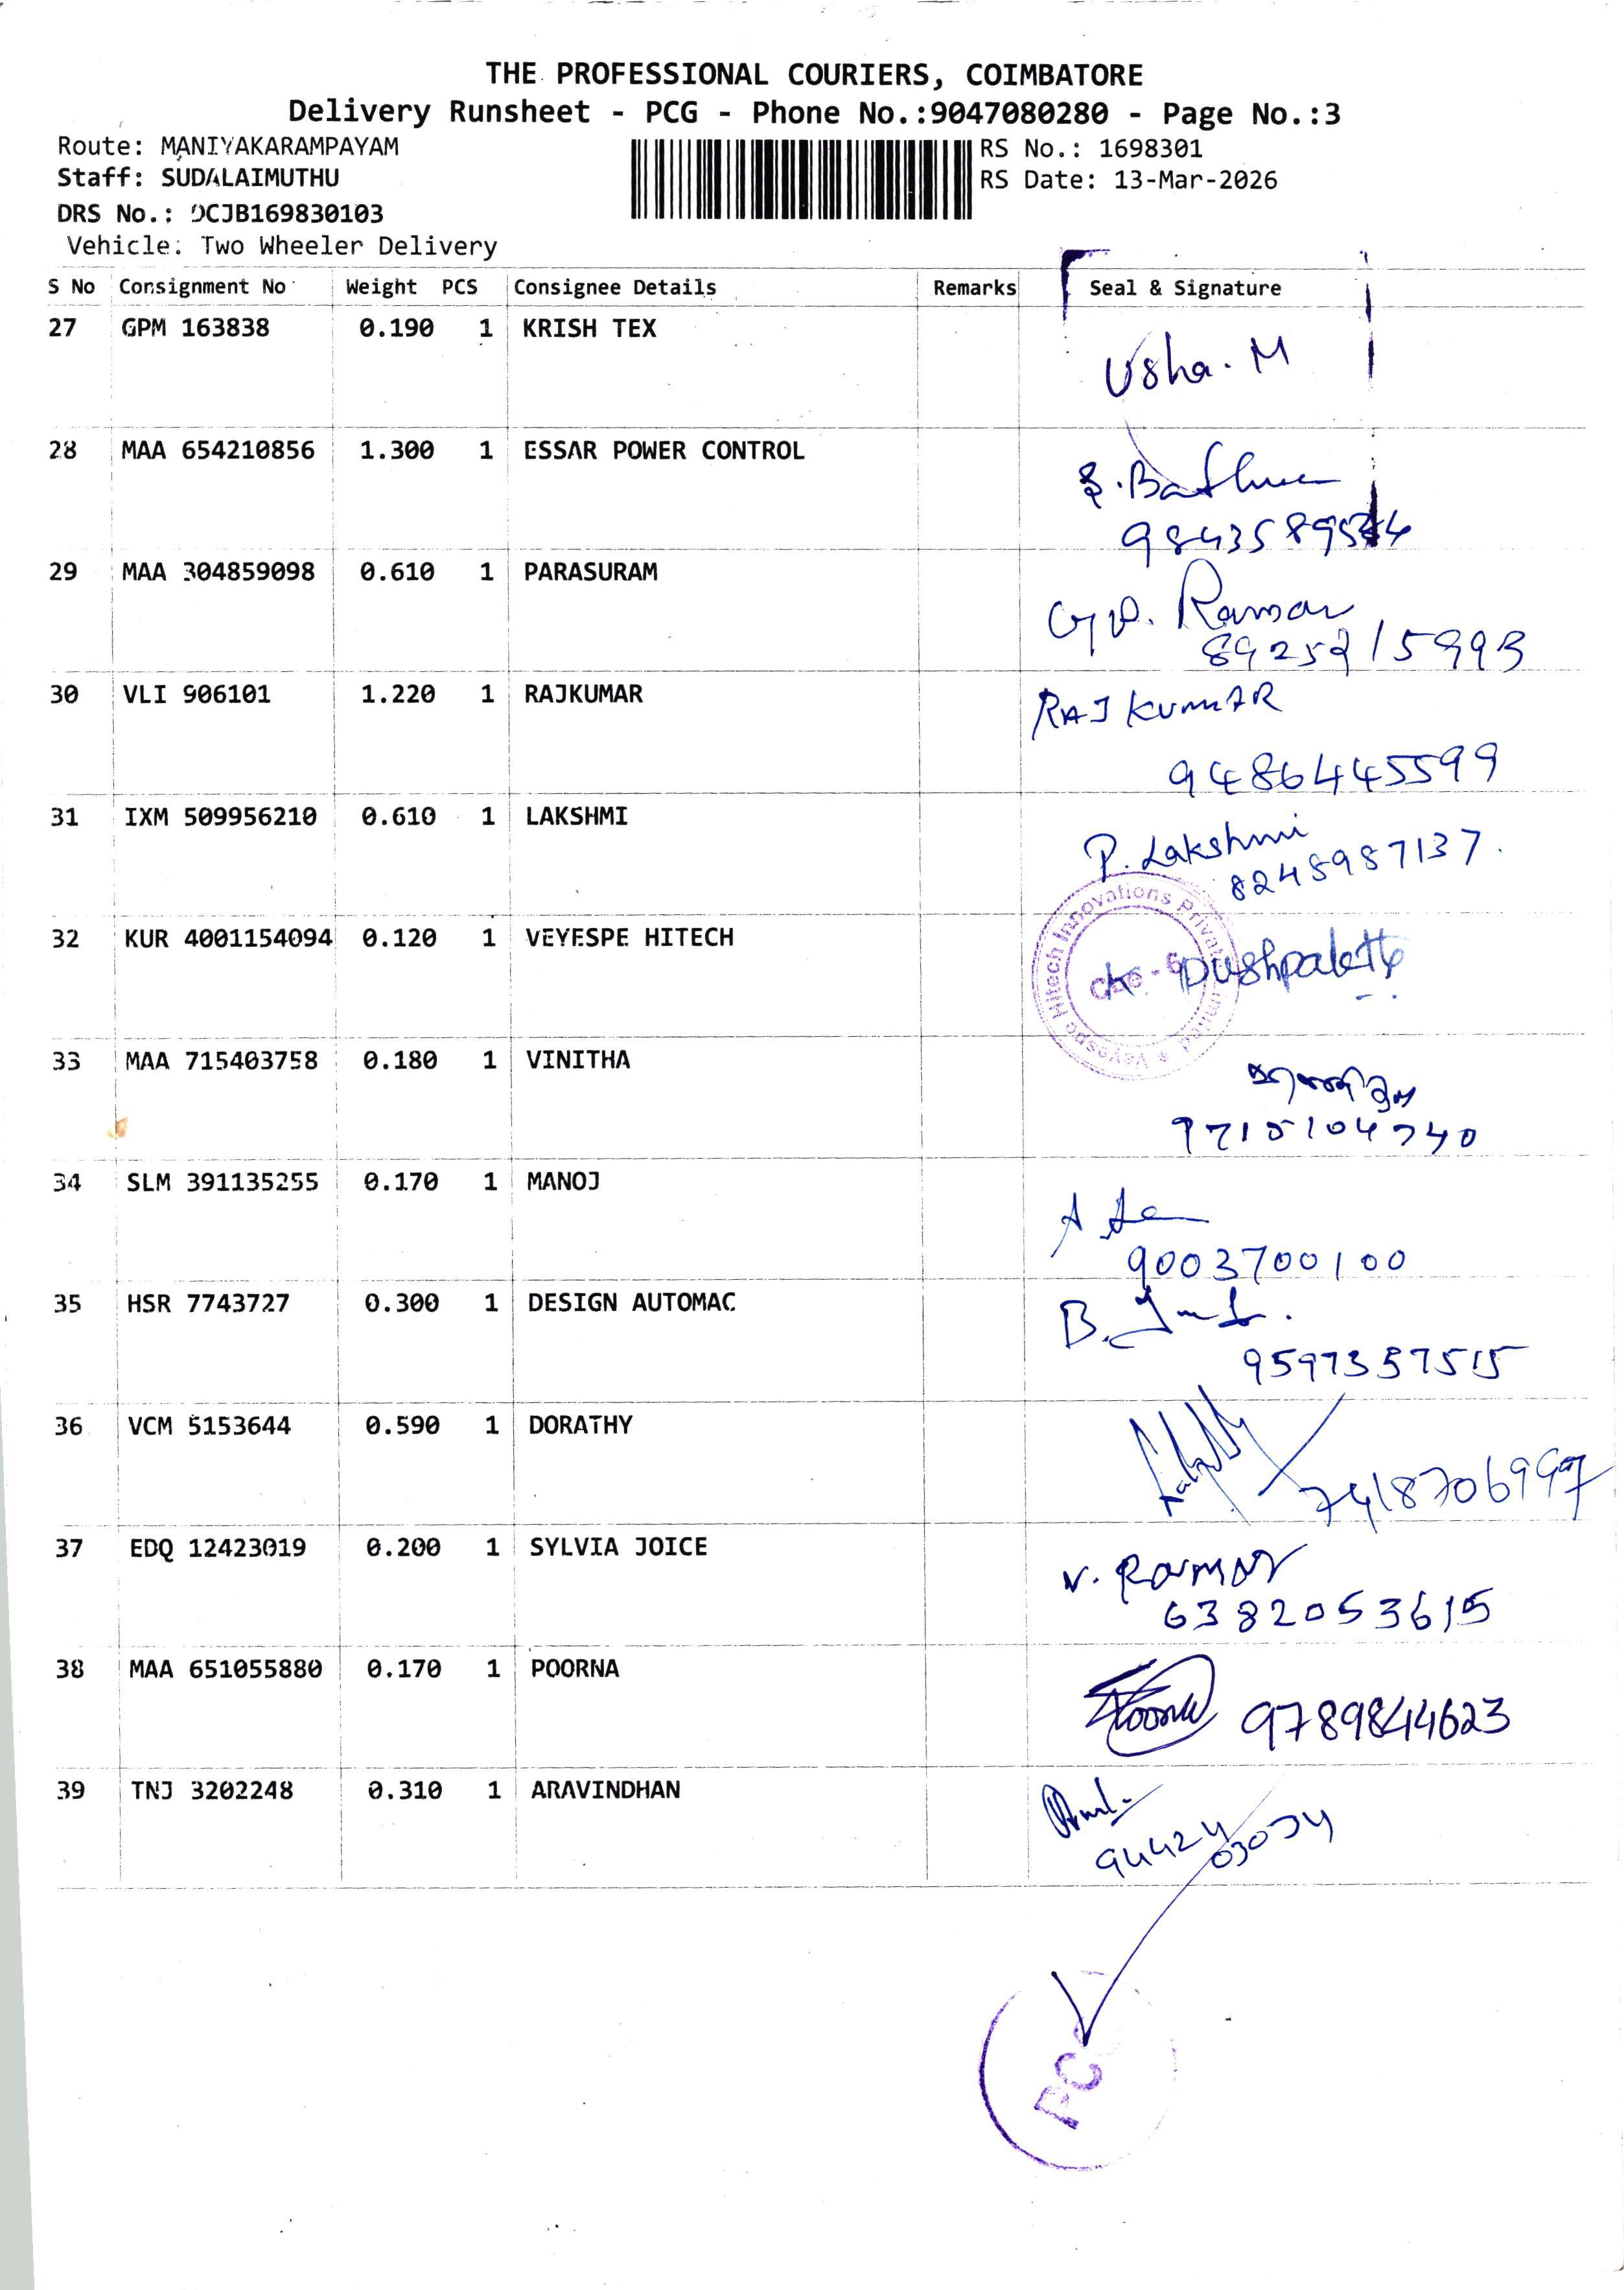 THE PROFESSIONAL COURIERS, COIMBATORE
Delivery Runsheet - PCG - Phone No.:9047080280 - Page No.:3
Route: MANIYAKARAMPAYAM
RS No.: 1698301
Staff: SUDALAIMUTHU
RS Date: 13-Mar-2026
DRS No.: DCJB169830103
Vehicle: Two Wheeler Delivery
S No Consignment No Weight PCS Consignee Details Remarks Seal & Signature
27 GPM 163838 0.190 1 KRISH TEX
Usha. M
28 MAA 654210856 1.300 1 ESSAR POWER CONTROL
29 MAA 304859098 0.610 1 PARASURAM
30 VLI 906101 1.220 1 RAJKUMAR
RAJ KUMAR
9486445599
31 IXM 509956210 0.610 1 LAKSHMI
P. Lakshmi
8248987137.
32 KUR 4001154094 0.120 1 VEYESPE HITECH
Veyespe Hitech Innovations Private Limited
Cbe - 6
33 MAA 715403758 0.180 1 VINITHA
34 SLM 391135255 0.170 1 MANOJ
9003700100
35 HSR 7743727 0.300 1 DESIGN AUTOMAC
36 VCM 5153644 0.590 1 DORATHY
7418706997
37 EDQ 12423019 0.200 1 SYLVIA JOICE
V. Ramar
6382053615
38 MAA 651055880 0.170 1 POORNA
Poorna 9789844623
39 TNJ 3202248 0.310 1 ARAVINDHAN
94424
03074
PC